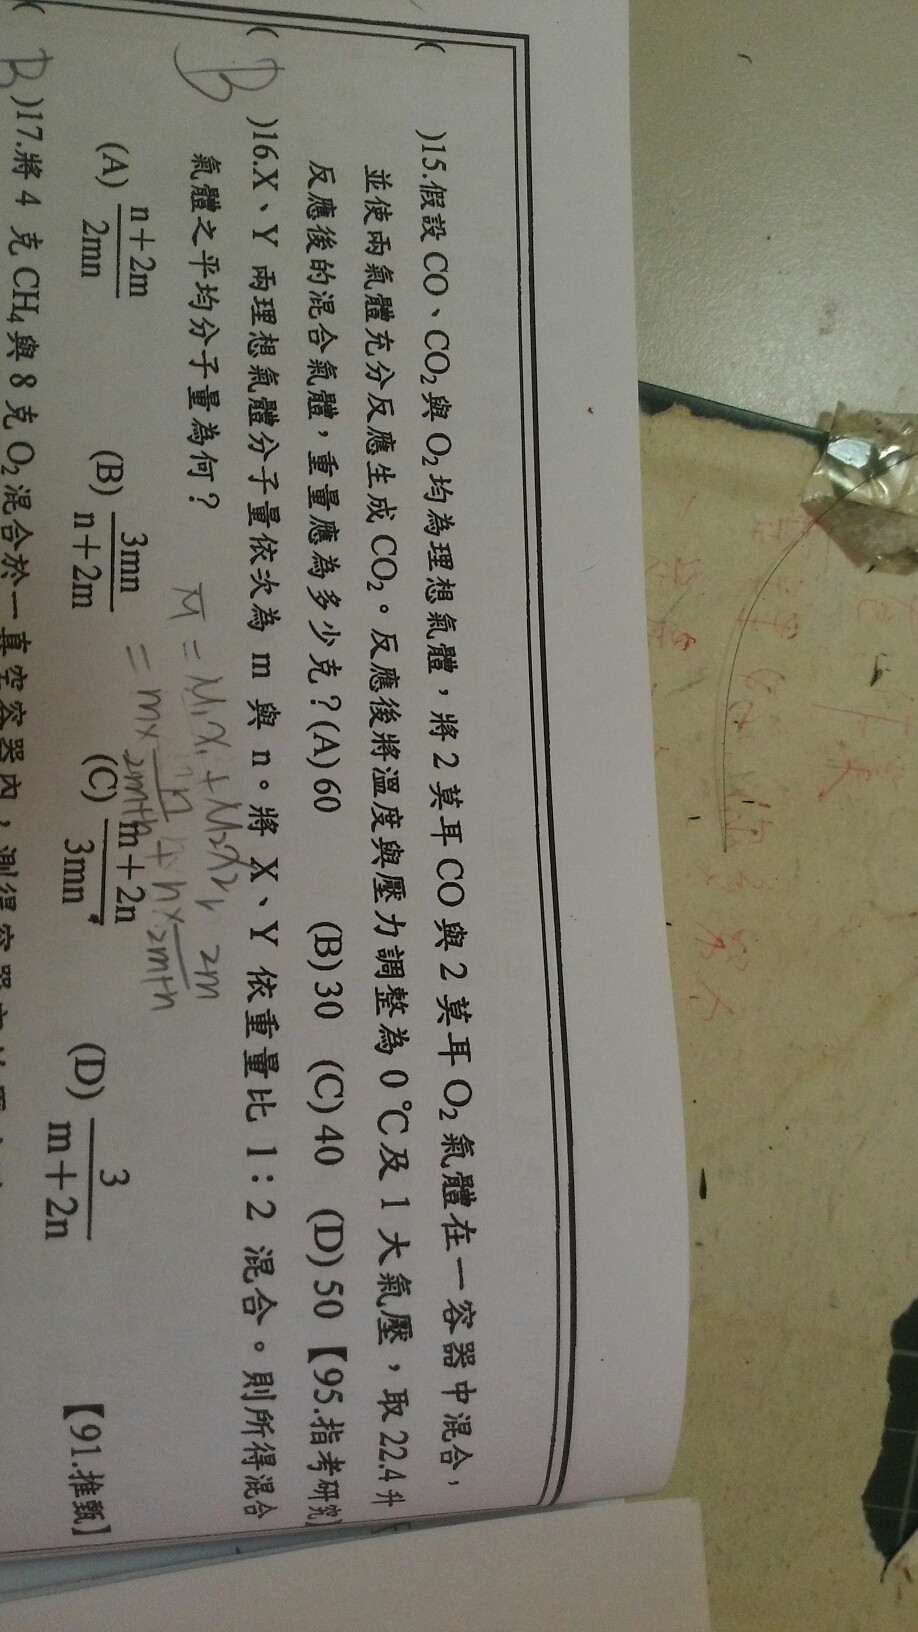 ( )15.假設 CO、CO₂與 O₂均為理想氣體，將 2 莫耳 CO 與 2 莫耳 O₂ 氣體在一容器中混合，
並使兩氣體充分反應生成 CO₂。反應後將溫度與壓力調整為 0 ℃及 1 大氣壓，取 22.4 升
反應後的混合氣體，重量應為多少克？(A) 60 (B) 30 (C) 40 (D) 50【95.指考研究】
( B )16.X、Y 兩理想氣體分子量依次為 m 與 n。將 X、Y 依重量比 1：2 混合。則所得混合
氣體之平均分子量為何？
M̄ = M₁X₁ + M₂X₂
= m× n/2m+n + n× 2m/2m+n
(A) n＋2m/2mn (B) 3mn/n＋2m (C) m＋2n/3mn (D) 3/m＋2n 【91.推甄】
( B )17.將 4 克 CH₄與 8 克 O₂混合於一真空容器內，測得容器